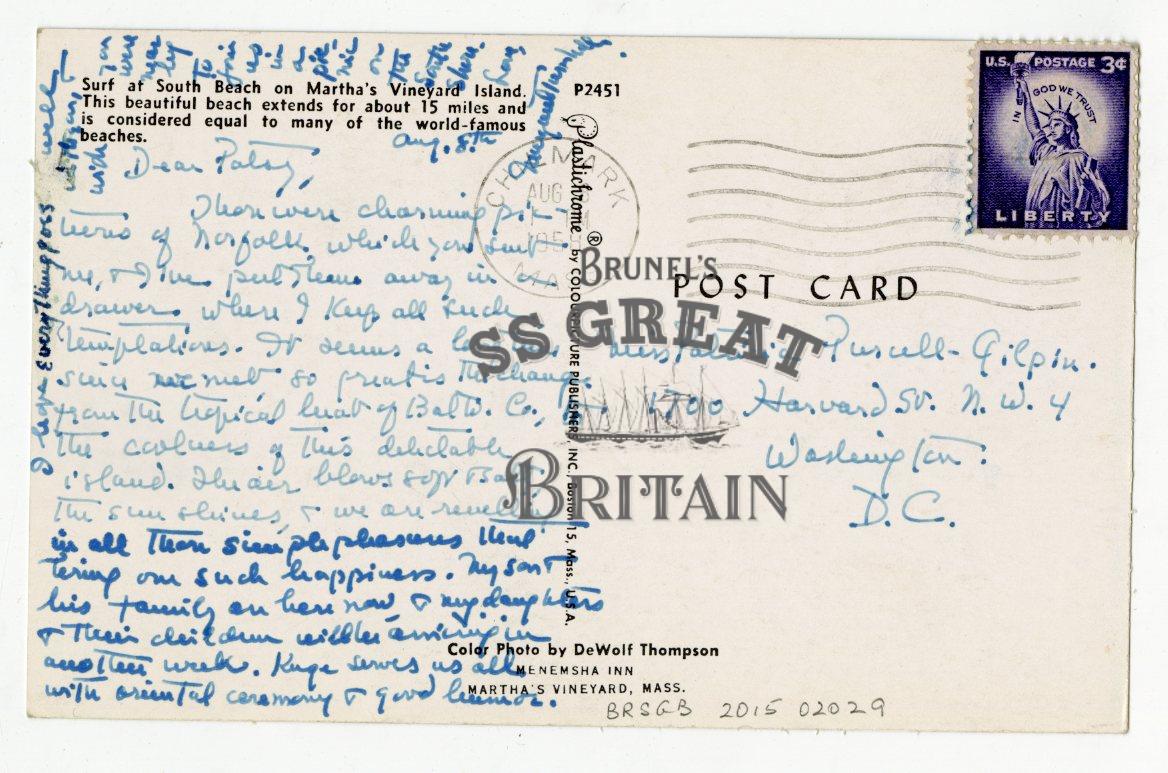 Surf at South Beach on Martha's Vineyard Island.
This beautiful beach extends for about 15 miles and
is considered equal to many of the world-famous
beaches.
P2451
Aug. 8th
Dear Patsy,
Those were charming pic-
tures of Norfolk which you sent
me, & I've put them away in a
drawer where I keep all such
temptations. It seems a long
since we met so great is the change
from the tropical heat of Balto. Co, to
the coolness of this delectable
island. The air blows soft But
the sun shines, & we are revelling
in all those simple pleasures that
bring one such happiness. My son &
his family are here now & my daughters
& their children will be arriving in
another week. Kuge serves us all
with oriental ceremony & good humor.
I hope everything goes
well
with
you
were
near
by
to
join
us in a
pic-
nic on
the South
Shore.
Plastichrome ® by COLOURPICTURE PUBLISHERS, INC. Boston 15, Mass., U.S.A.
CHILMARK
AUG
MASS
U.S. POSTAGE 3¢
IN GOD WE TRUST
LIBERTY
POST CARD
Purcell-Gilpin.
1700 Harvard St. N.W. 4
Washington
D.C.
BRUNEL'S
SS GREAT
BRITAIN
Color Photo by DeWolf Thompson
MENEMSHA INN
MARTHA'S VINEYARD, MASS.
BRSGB 2015 02029